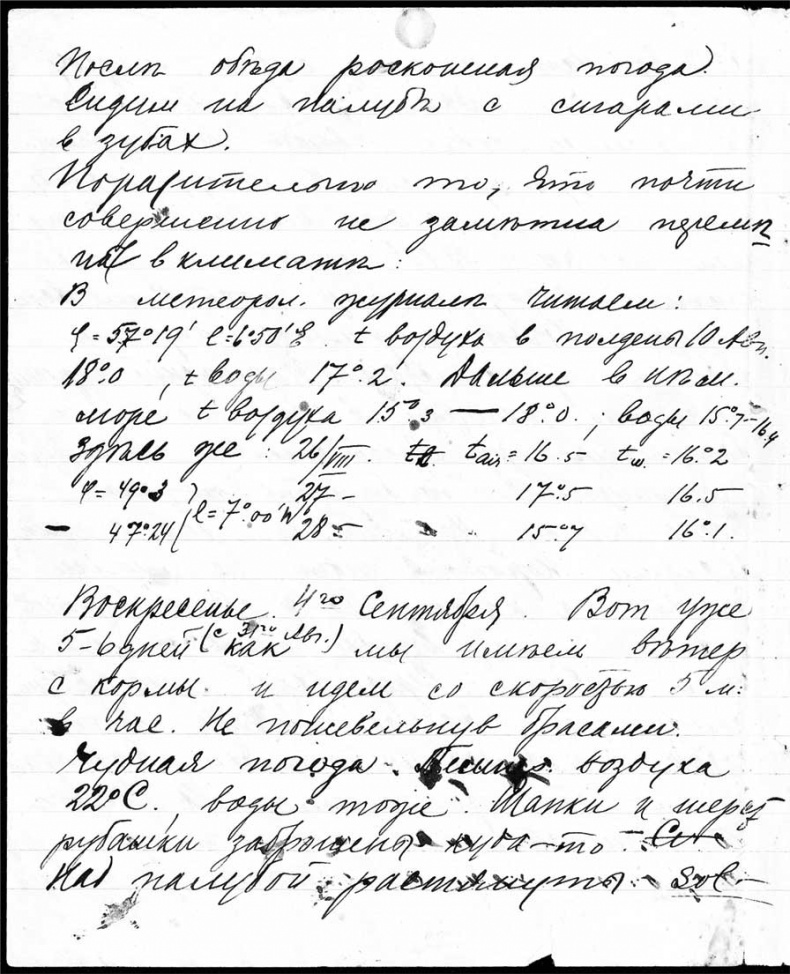 Послѣ обѣда роскошная погода.
Сидим на палубѣ с сигарами
в зубах.
Поразительно то, что почти
совершенно не замѣтна перемѣ
на в климатѣ:
В метеорол. журналѣ читаем:
φ = 57°19' l = 6°50' t воздуха в полдень 10 Авг.
18°.0, t воды 17°.2. Дальше в Нѣм.
море t воздуха 15°.3 — 18°.0.; воды 15°.7–16.4
Здѣсь же: 26/VIII. t air = 16.5 t w. = 16°.2
φ = 49°.3 ) 27 – 17°.5 16.5
– 47°.24 ( l = 7°.00' W 28 – 15°.7 16°.1.
Воскресенье. 4го Сентября. Вот уже
5–6 дней (с 31го Авг.) как мы имѣем вѣтер
с кормы и идем со скоростью 5 м.
в час. Не пошевельнув брасами.
Чудная погода. воздуха
22°C, воды тоже. Шапки и шерст
рубашки заброшены куда-то –
Над палубой растянуты sol–